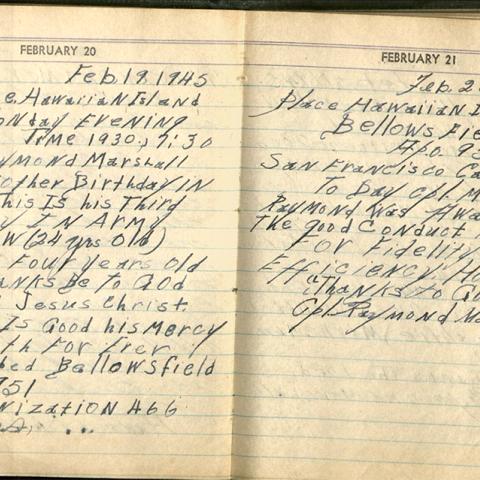 FEBRUARY 20
Feb. 19. 1945
e. Hawaiian Island
onday Evening
Time 1930., 7:30
ymond Marshall
other Birthday IN
This Is his Third
y IN Army
W (24 yrs Old)
Four years Old
anks Be To God
Jesus Christ.
Is Good his Mercy
th For Ever
Bellowsfield
951
nization 466
FEBRUARY 21
Feb. 2
Place Hawaiian I
Bellows Fie
Apo. 95
San Francisco Ca
To Day Cpl. M
Raymond Was Awa
The good Conduct
For Fidelity
Efficiency. Ho
"Thanks to G
Cpl Raymond Ma